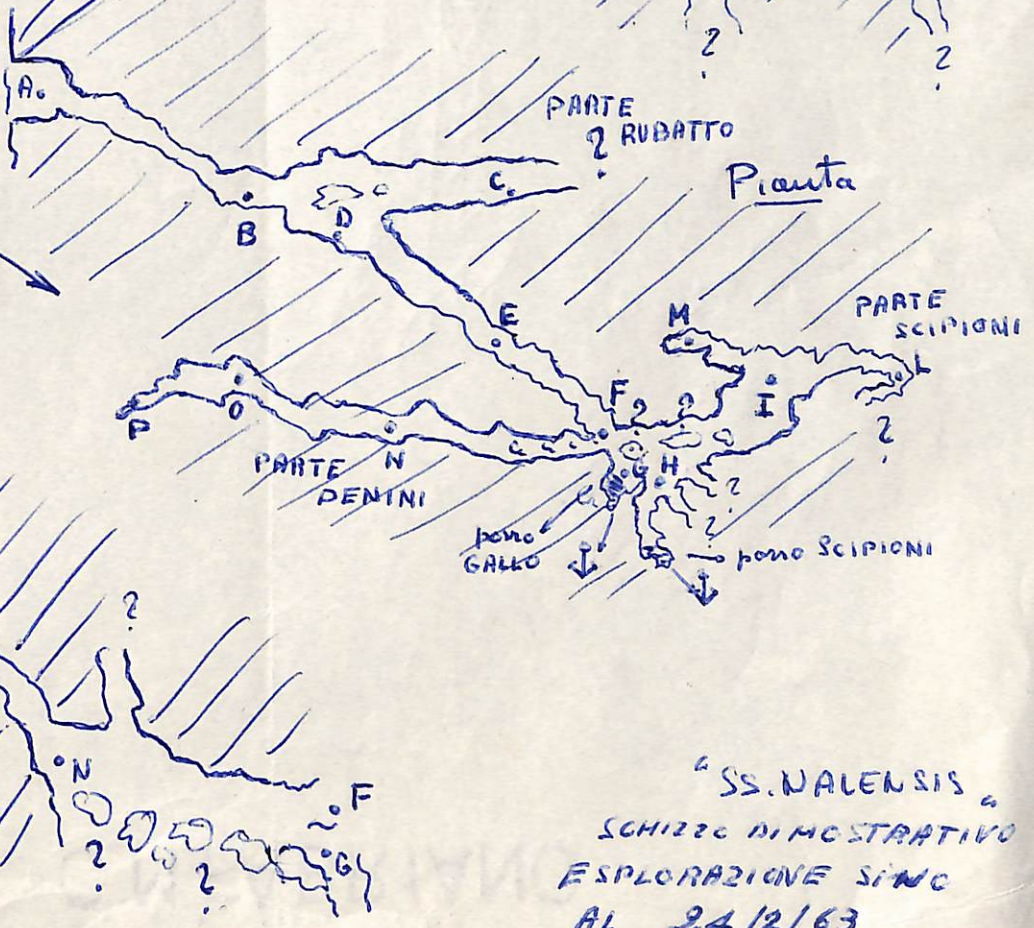 ?
?
A.
PARTE
? RUBATTO
Pianta
C.
B
D
E
M
PARTE
SCIPIONI
L
I
F
?
?
?
P
O
N
PARTE
DENINI
G
H
?
?
pozzo
GALLO
pozzo SCIPIONI
?
N
F
G
?
?
"SS. NALENSIS"
SCHIZZO DIMOSTRATIVO
ESPLORAZIONE SINO
AL 24/2/63